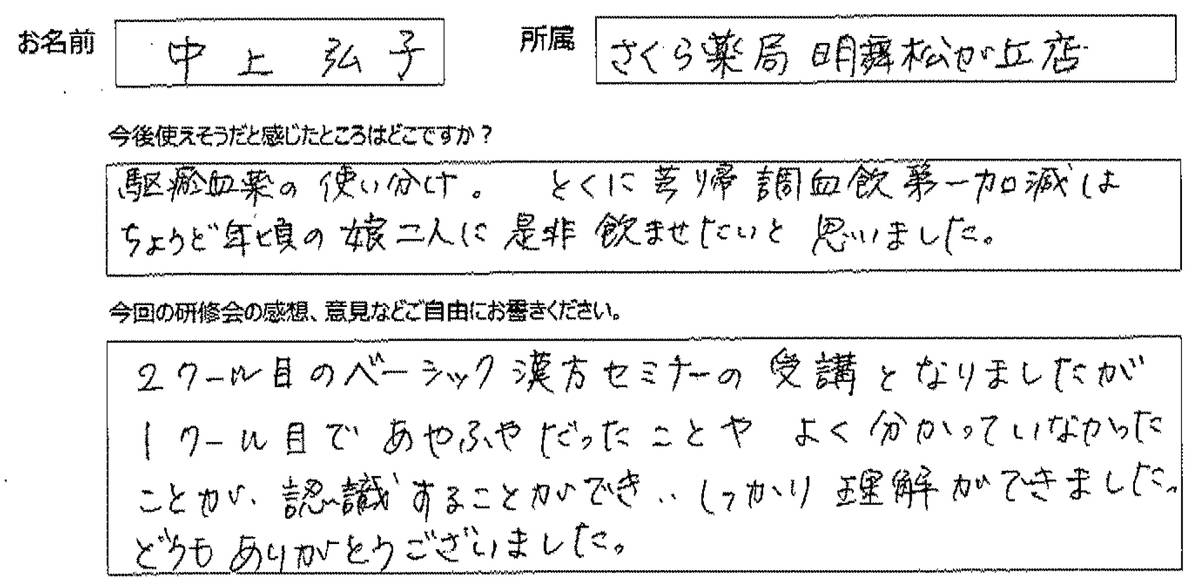 お名前 中上 弘子 所属 さくら薬局 明舞松が丘店
今後使えそうだと感じたところはどこですか？
駆瘀血薬の使い分け。 とくに芎帰調血飲第一加減は
ちょうど年頃の娘二人に是非飲ませたいと思いました。
今回の研修会の感想、意見などご自由にお書きください。
2クール目のベーシック漢方セミナーの受講となりましたが
1クール目であやふやだったことや よく分かっていなかった
ことが、認識することができ、しっかり理解ができました。
どうもありがとうございました。